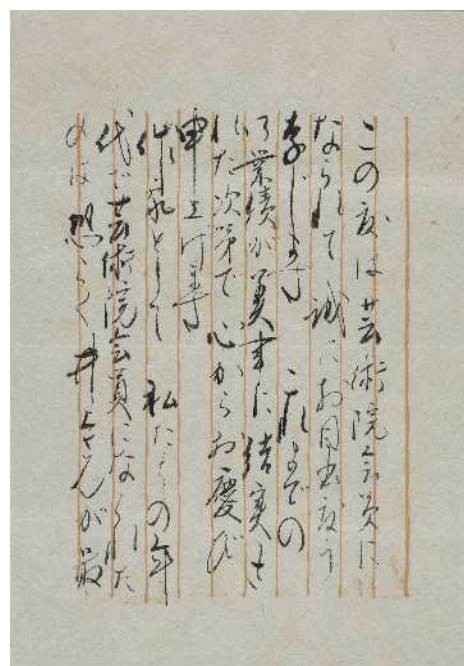 この度は芸術院会員に
なられて誠にお目出度う
存じます これまでの
御業績が美事に結実さ
れた次第で心からお慶び
申上げます
作家として 私たちの年
代で芸術院会員になられた
のは恐らく井上さんが最